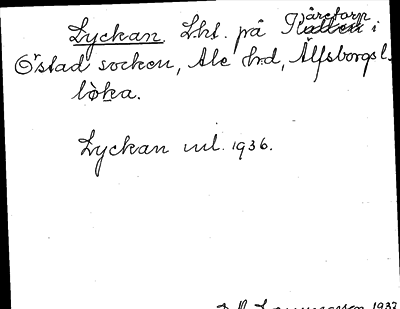 Lyckan Lht. på Råretorp i
Östad socken, Ale hrd, Älfsborgs l.
lòka.
Lyckan inl. 1936.
1937